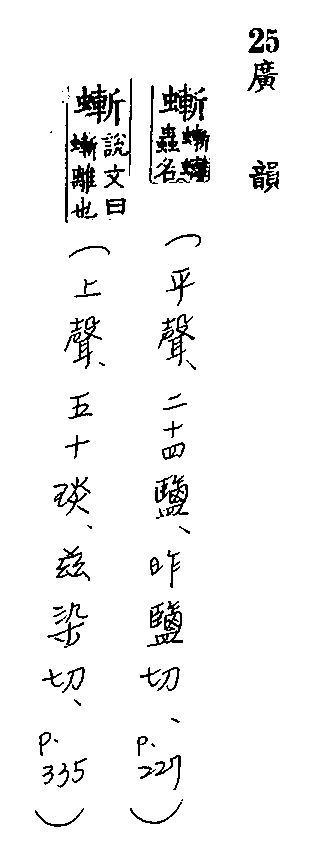 25 廣韻
螹 螹蟲名（平聲、二十四鹽、昨鹽切、p.227）
螹 說文曰螹離也（上聲、五十琰、兹染切、p.335）